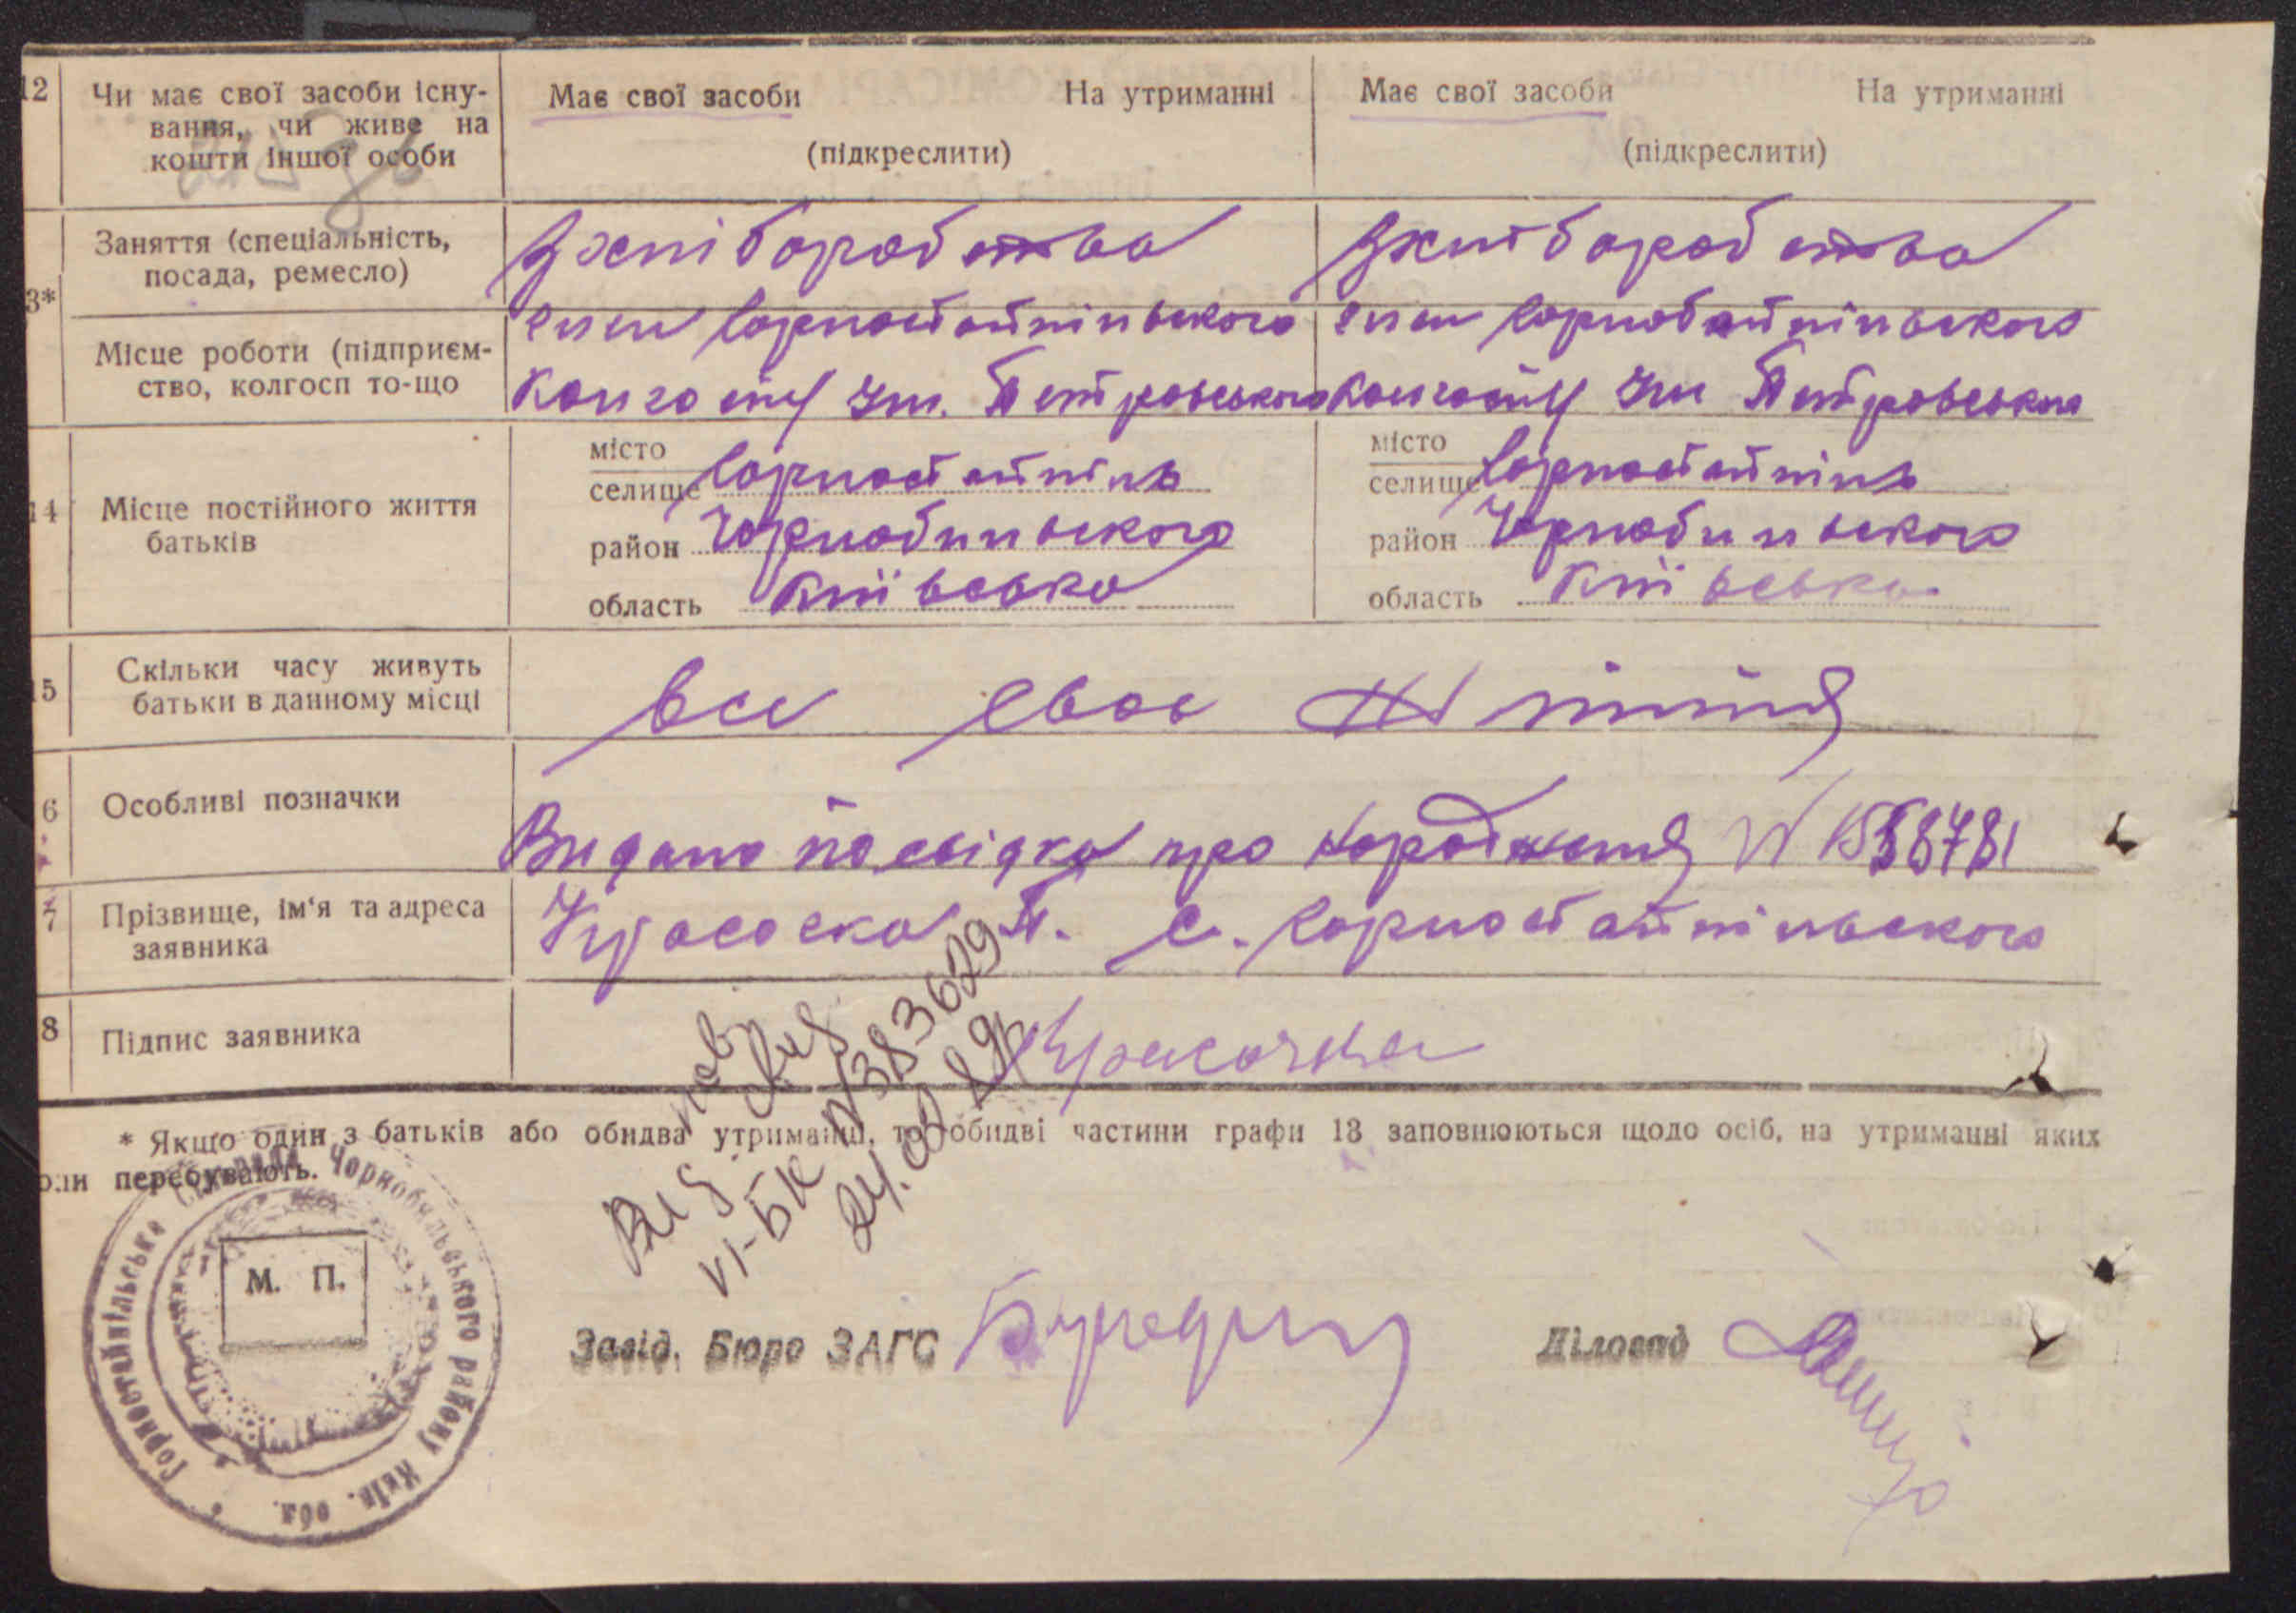 12 Чи має свої засоби існу-
вання, чи живе на
кошти іншої особи
Має свої засоби На утриманні
(підкреслити)
Має свої засоби На утриманні
(підкреслити)
3*
Заняття (спеціальність,
посада, ремесло)
Місце роботи (підприєм-
ство, колгосп то-що
член Горностайпільского
колгоспу Ім. Петровського
член Горностайпільского
колгоспу Ім Петровського
14 Місце постійного життя
батьків
місто
селище Горностайпіль
район Чорнобильского
область Київська
місто
селище Горностайпіль
район Чорнобильского
область Київська
15 Скільки часу живуть
батьки в данному місці
все своє життя
6 Особливі позначки
Видано посвідку про народження N 1558781
7 Прізвище, ім'я та адреса
заявника
П. с. Горностайпільского
8 Підпис заявника
* Якщо один з батьків або обидва утриманці, то обидві частини графи 13 заповнюються щодо осіб, на утриманні яких
они перебувають.
Вид. пов. свид
VI-БК N 383629
Горностайпільська Сільрада Чорнобильського району Київ. обл.
М. П.
Завід. Бюро ЗАГС
Діловод